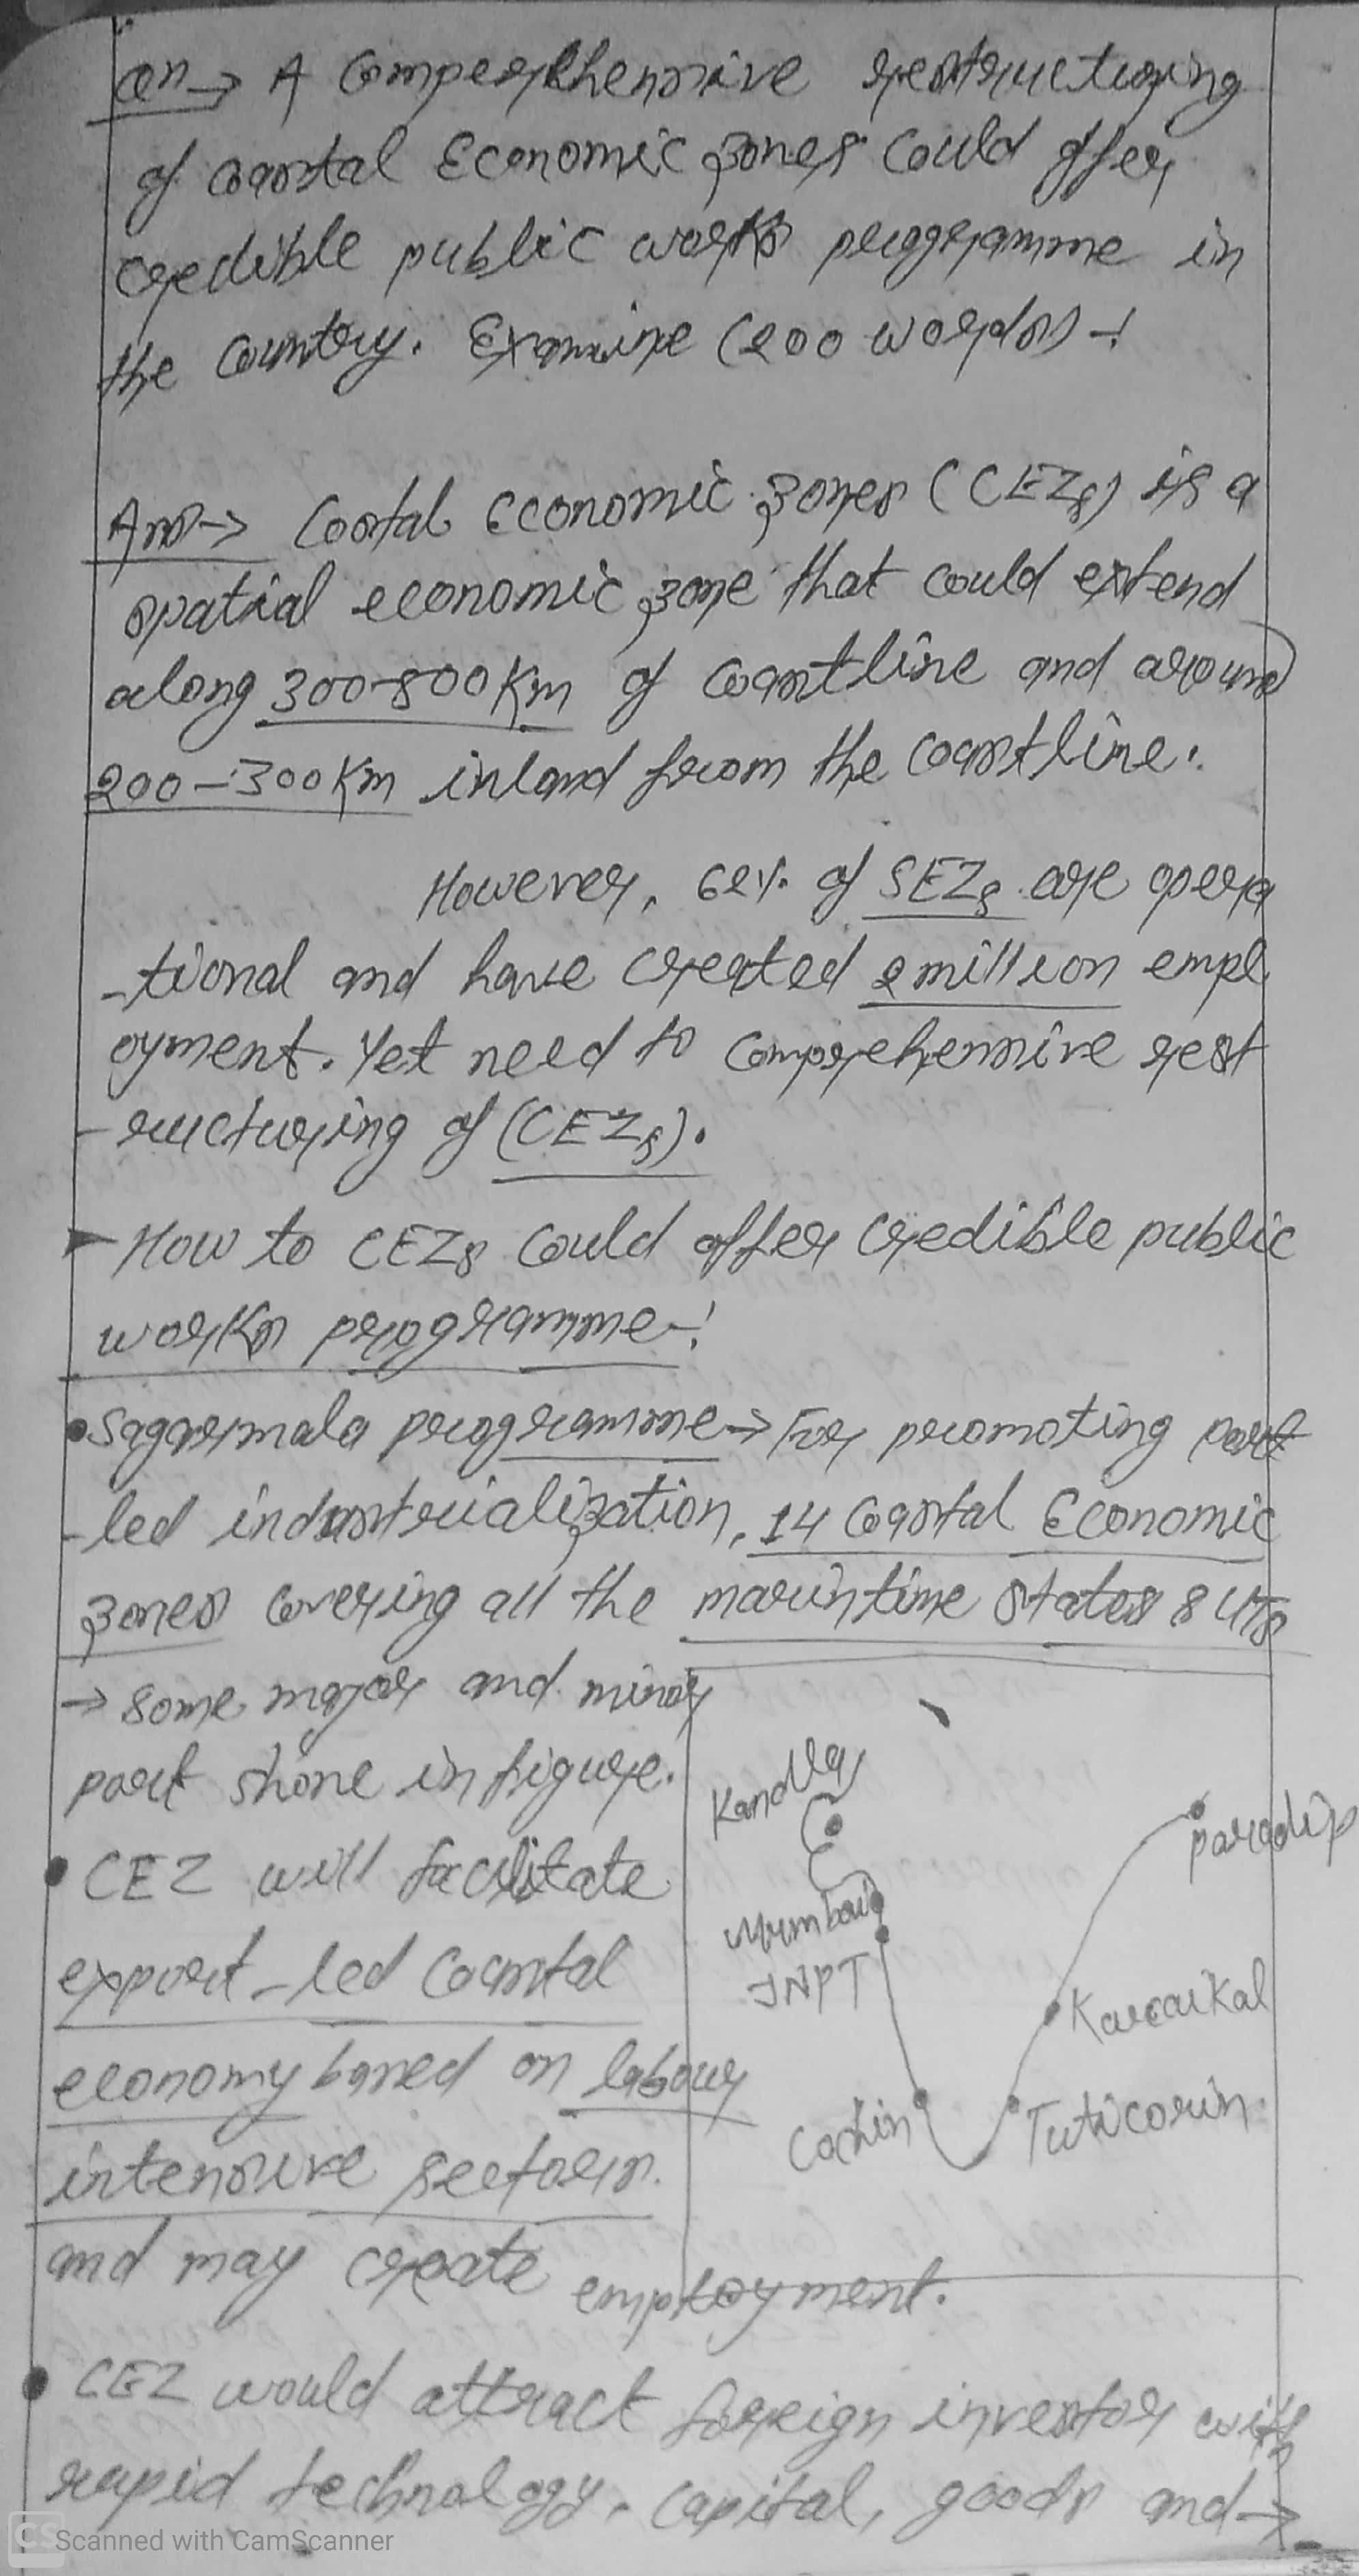 Qn→ A Comperehensive restructuring
of coastal Economic zones could offer
credible public works programme in
the country. Examine (200 words) -!
Ans→ Costal Economic zones (CEZs) is a
spatial economic zone that could extend
along 300-800 Km of coastline and around
200-300 Km inland from the coastline.
However, 62% of SEZs are opera
-tional and have created 2 million empl
oyment. Yet need to comprehensive rest
-ructuring of (CEZs).
How to CEZs could offer credible public
works programme-!
• Sagarmala programme → For promoting port
-led industrialization, 14 Coastal Economic
zones covering all the marintime states & UTs
→ some major and minor
port shone in figure.
• CEZ will facilitate
export-led coastal
economy based on labour
intensive sectors.
and may create employment.
Kandla
Mumbai
JNPT
Cochin
Paradip
Karaikal
Tuticorin
• CEZ would attract foreign investor with
rapid technology, capital, goods and →
CS Scanned with CamScanner